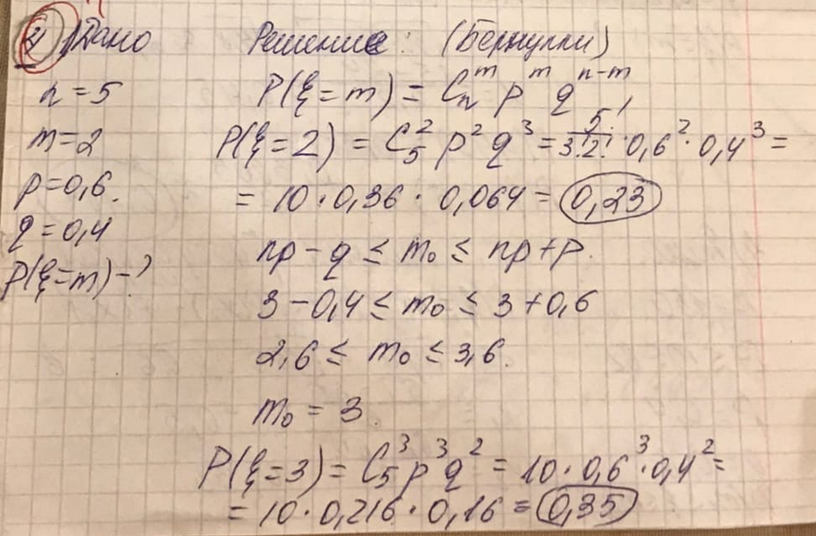 2) Дано
Решение: (Бернулли)
n=5
P(ξ=m) = C_n^m p^m q^{n-m}
m=2
P(ξ=2) = C_5^2 p^2 q^3 = 5!/(3!2!) · 0,6^2 · 0,4^3 =
p=0,6.
= 10 · 0,36 · 0,064 = 0,23
q=0,4
np-q ≤ m_0 ≤ np+p.
P(ξ=m)-?
3-0,4 ≤ m_0 ≤ 3+0,6
2,6 ≤ m_0 ≤ 3,6.
m_0 = 3
P(ξ=3) = C_5^3 p^3 q^2 = 10 · 0,6^3 · 0,4^2 =
= 10 · 0,216 · 0,16 = 0,35